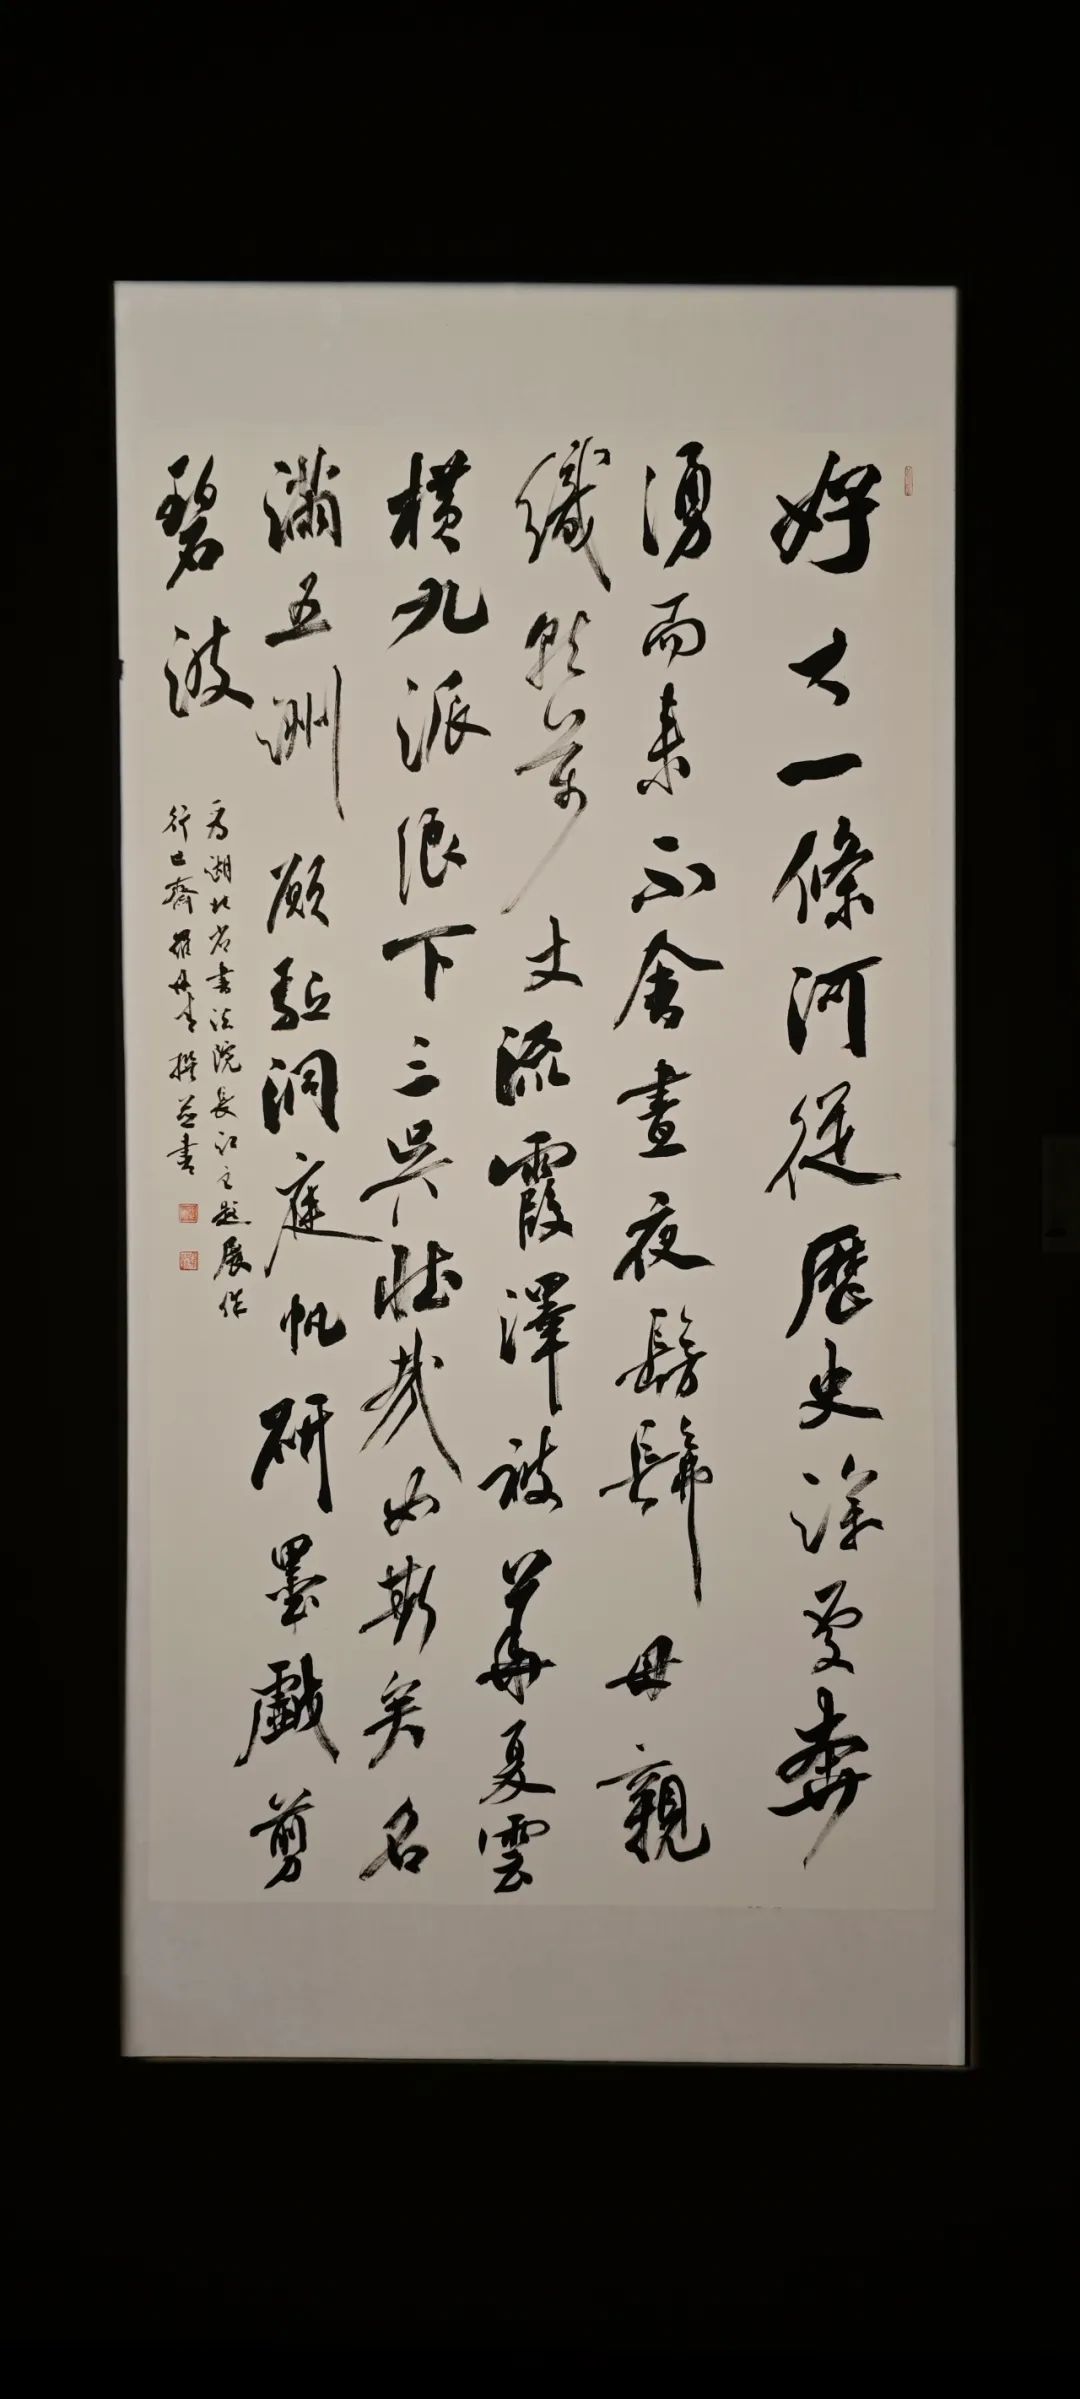 好大一條河從歷史深處奔
湧而來不舍晝夜髣髴母親
織就萬丈流霞澤被華夏雲
橫九派浪下三吳壯哉如斯矣名
滿五洲願駐洞庭帆研墨戲剪
碧波
為湖北省書法院長江主題展作
行己齋羅丹青撰並書